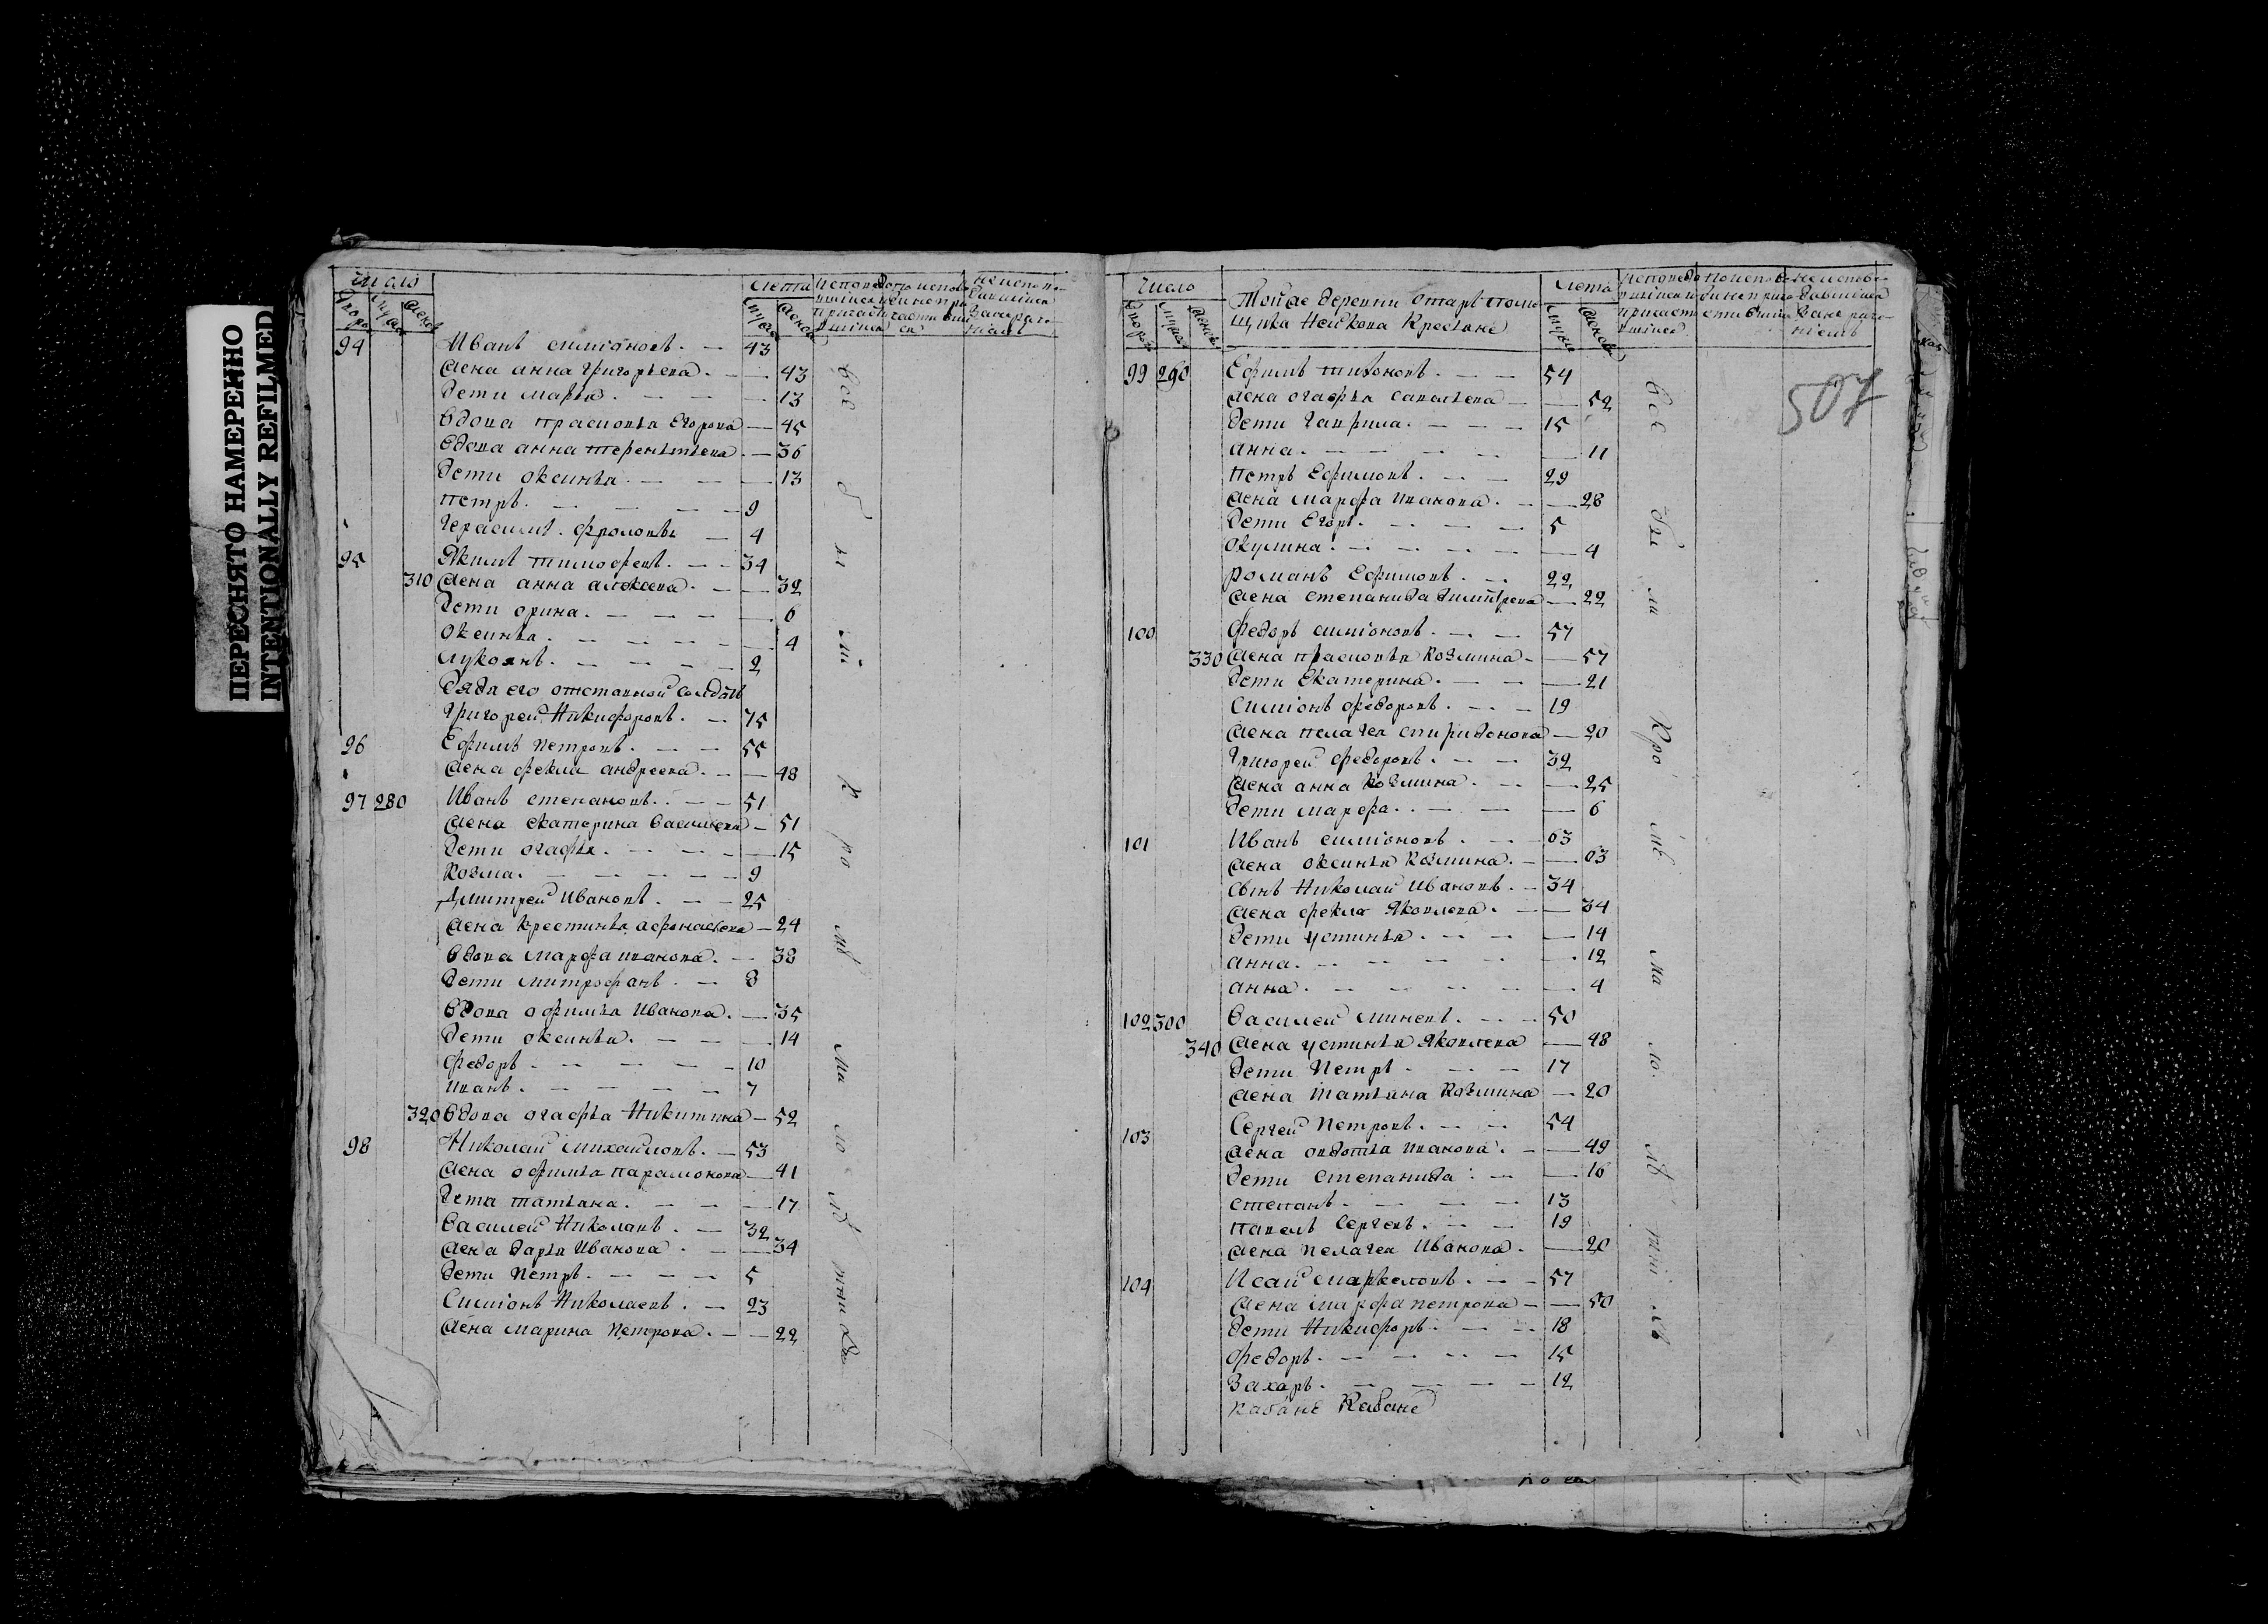 ПЕРЕСНЯТО НАМЕРЕННО
INTENTIONALLY REFILMED
число
лета
94 Иванъ симионовъ 43
жена анна григорьева 43
дети марья 13
вдова прасковья Егорова 45
вдова анна терентьева 36
дети оксинья 13
петръ 9
герасимъ фроловы 4
95 Якимъ тимофеевъ 34
310 жена анна алексеева 32
дети орина 6
оксинья 4
лукоянъ 2
дядя его отставной солдатъ
григорей Никифоровъ 75
96 Ефимъ петровъ 55
жена фекла андреева 48
97 280 Иванъ степановъ 51
жена екатерина васильева 51
дети огафья 15
козма 9
Дмитрей Ивановъ 25
жена крестинья афонасьева 24
вдова марфа иванова 38
дети митрофанъ 8
вдова офимья Иванова 35
дети оксинья 14
федоръ 10
иванъ 7
320 вдова огафья Никитина 52
98 Николай михайловъ 53
жена офимья парамонова 41
дети татьяна 17
василей Николаевъ 32
жена дарья Иванова 34
дети Петръ 5
Симионъ Николаевъ 23
жена марина Петрова 22
все были кро ме ма ло ле тних
число
Той же деревни отаръ поме
щика Нейкова Крестьяне
лета
507
99 290 Ефимъ тихоновъ 54
жена огафья савельева 52
дети гаврила 15
анна 11
петръ Ефимовъ 29
жена марфа иванова 28
дети Егоръ 5
окулина 4
романъ Ефимовъ 22
жена степанида димитрева 22
100 федоръ симионовъ 57
330 жена прасковья козмина 57
дети Екатерина 21
Симионъ федоровъ 19
жена пелагея спиридонова 20
григорей федоровъ 32
жена анна козмина 25
дети марфа 6
101 Иванъ симионовъ 63
жена оксинья козмина 63
сынъ Николай Ивановъ 34
жена фекла Яковлева 34
дети устинья 14
анна 12
анна 4
102 300 василей минеевъ 50
340 жена устинья Яковлева 48
дети Петръ 17
жена татьяна козмина 20
103 Сергей Петровъ 54
жена овдотья иванова 49
дети степанида 16
степанъ 13
павелъ Сергеевъ 19
жена Пелагея Иванова 20
104 Исай маркеловъ 57
жена марфа петрова 50
дети Никифоръ 18
федоръ 15
Захаръ 12
все бы ли кро ме ма ло ле тни хъ